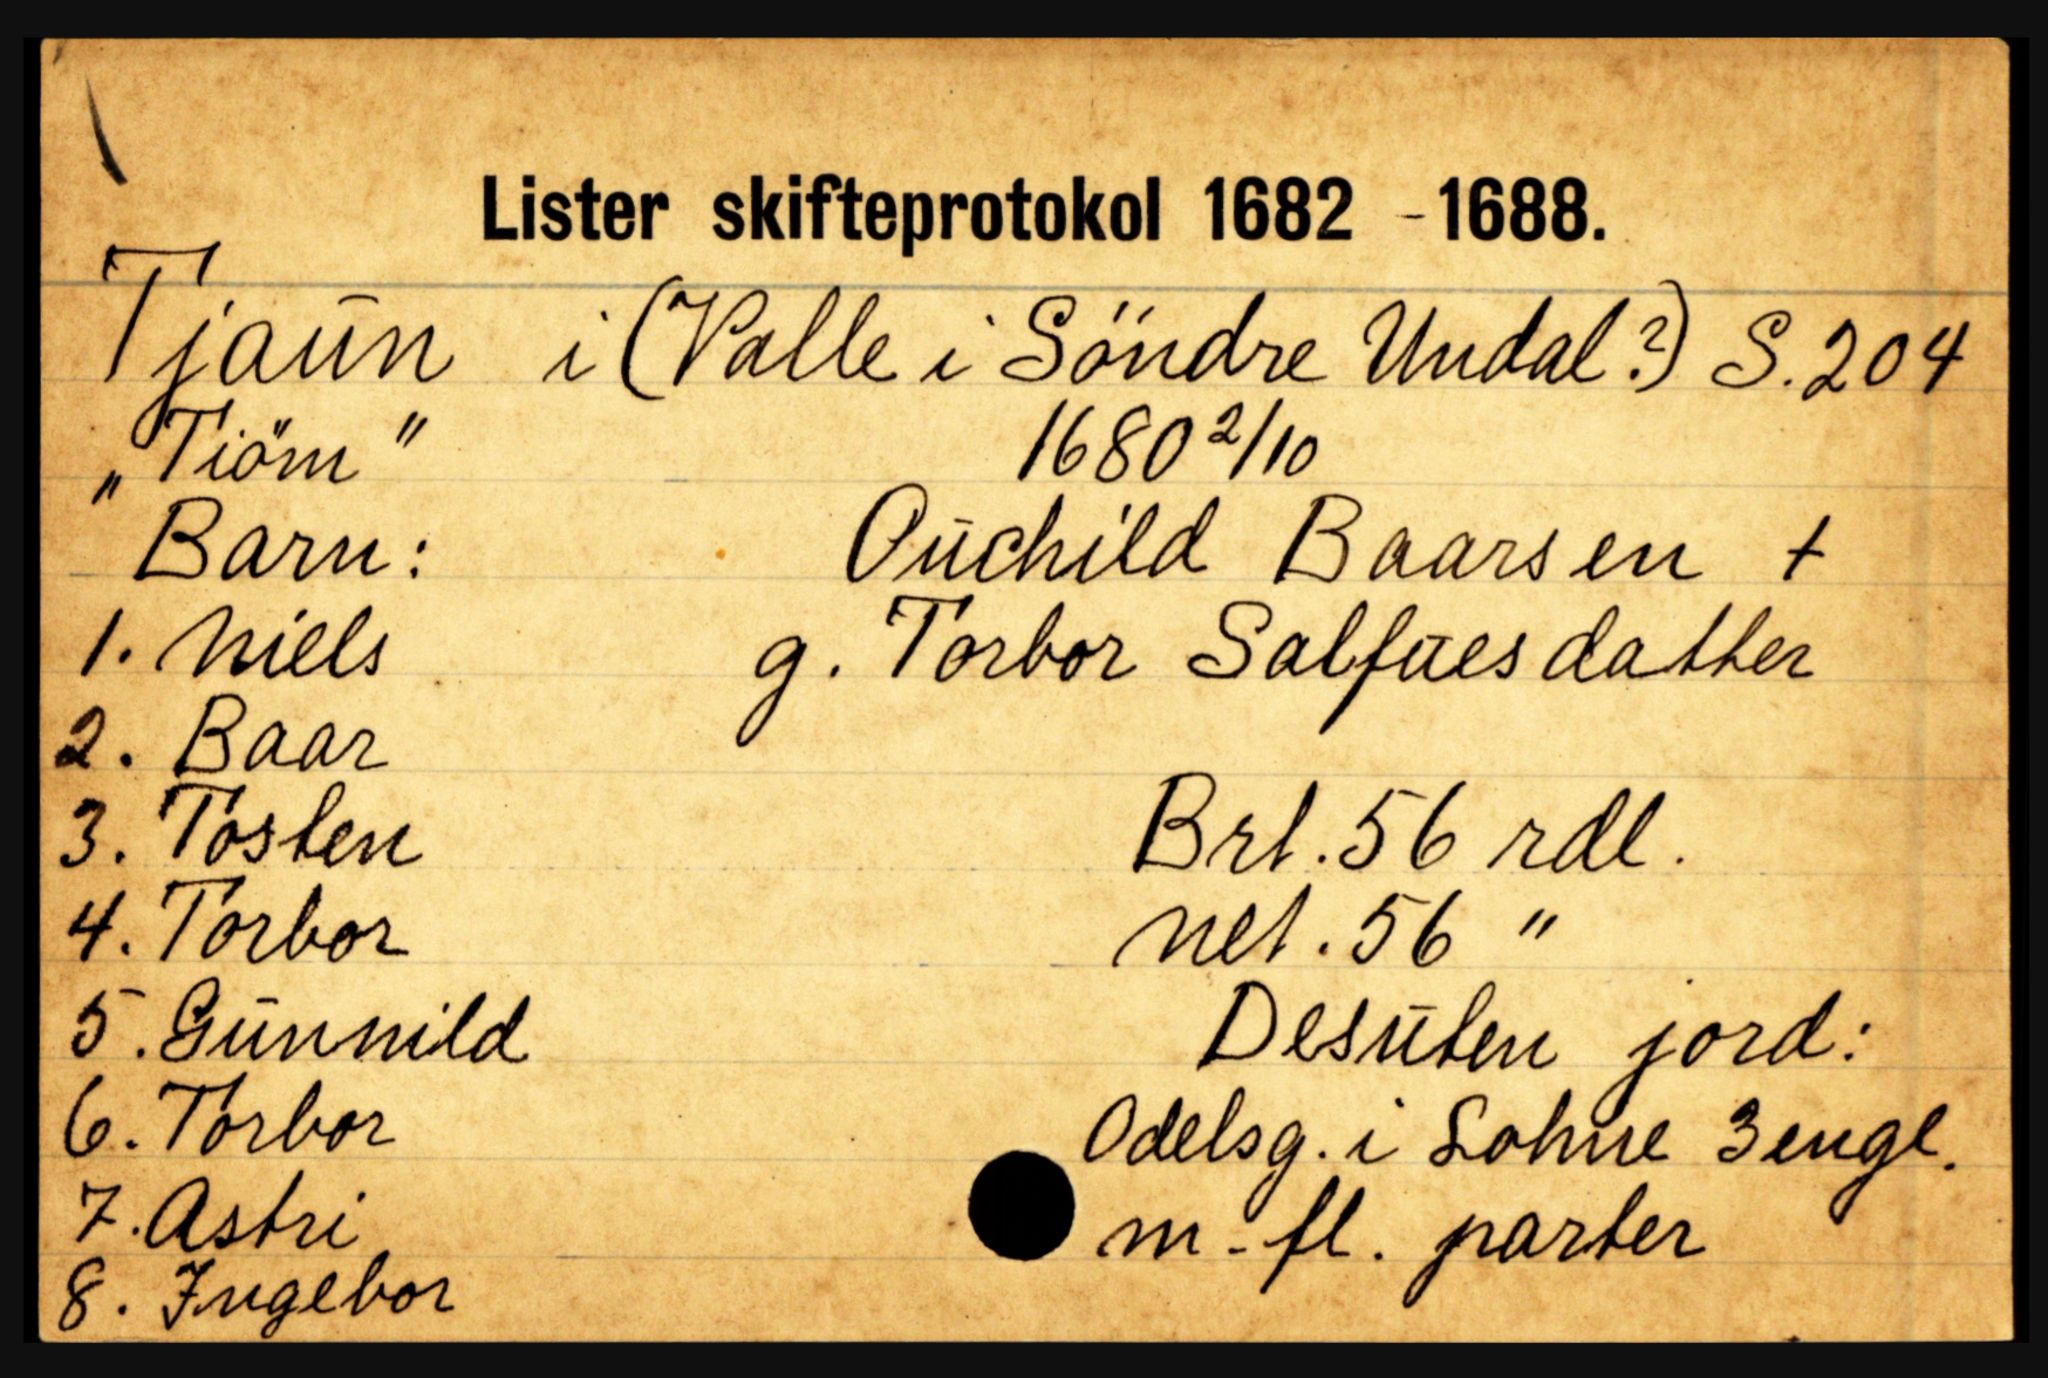 Lister skifteprotokol 1682 - 1688.
Tjaun i (Valle i Söndre Undal?) S. 204
"Tiöm" 1680 2/10
Barn: Ouchild Baarsen +
1. Niels g. Torbor Salfuesdatter
2. Baar
3. Tosten Brt. 56 rdl.
4. Torbor net. 56 "
5. Gunnild Desuten jord:
6. Torbor Odelsg. i Lohne 3 engl.
7. Astri m. fl. parter
8. Ingebor